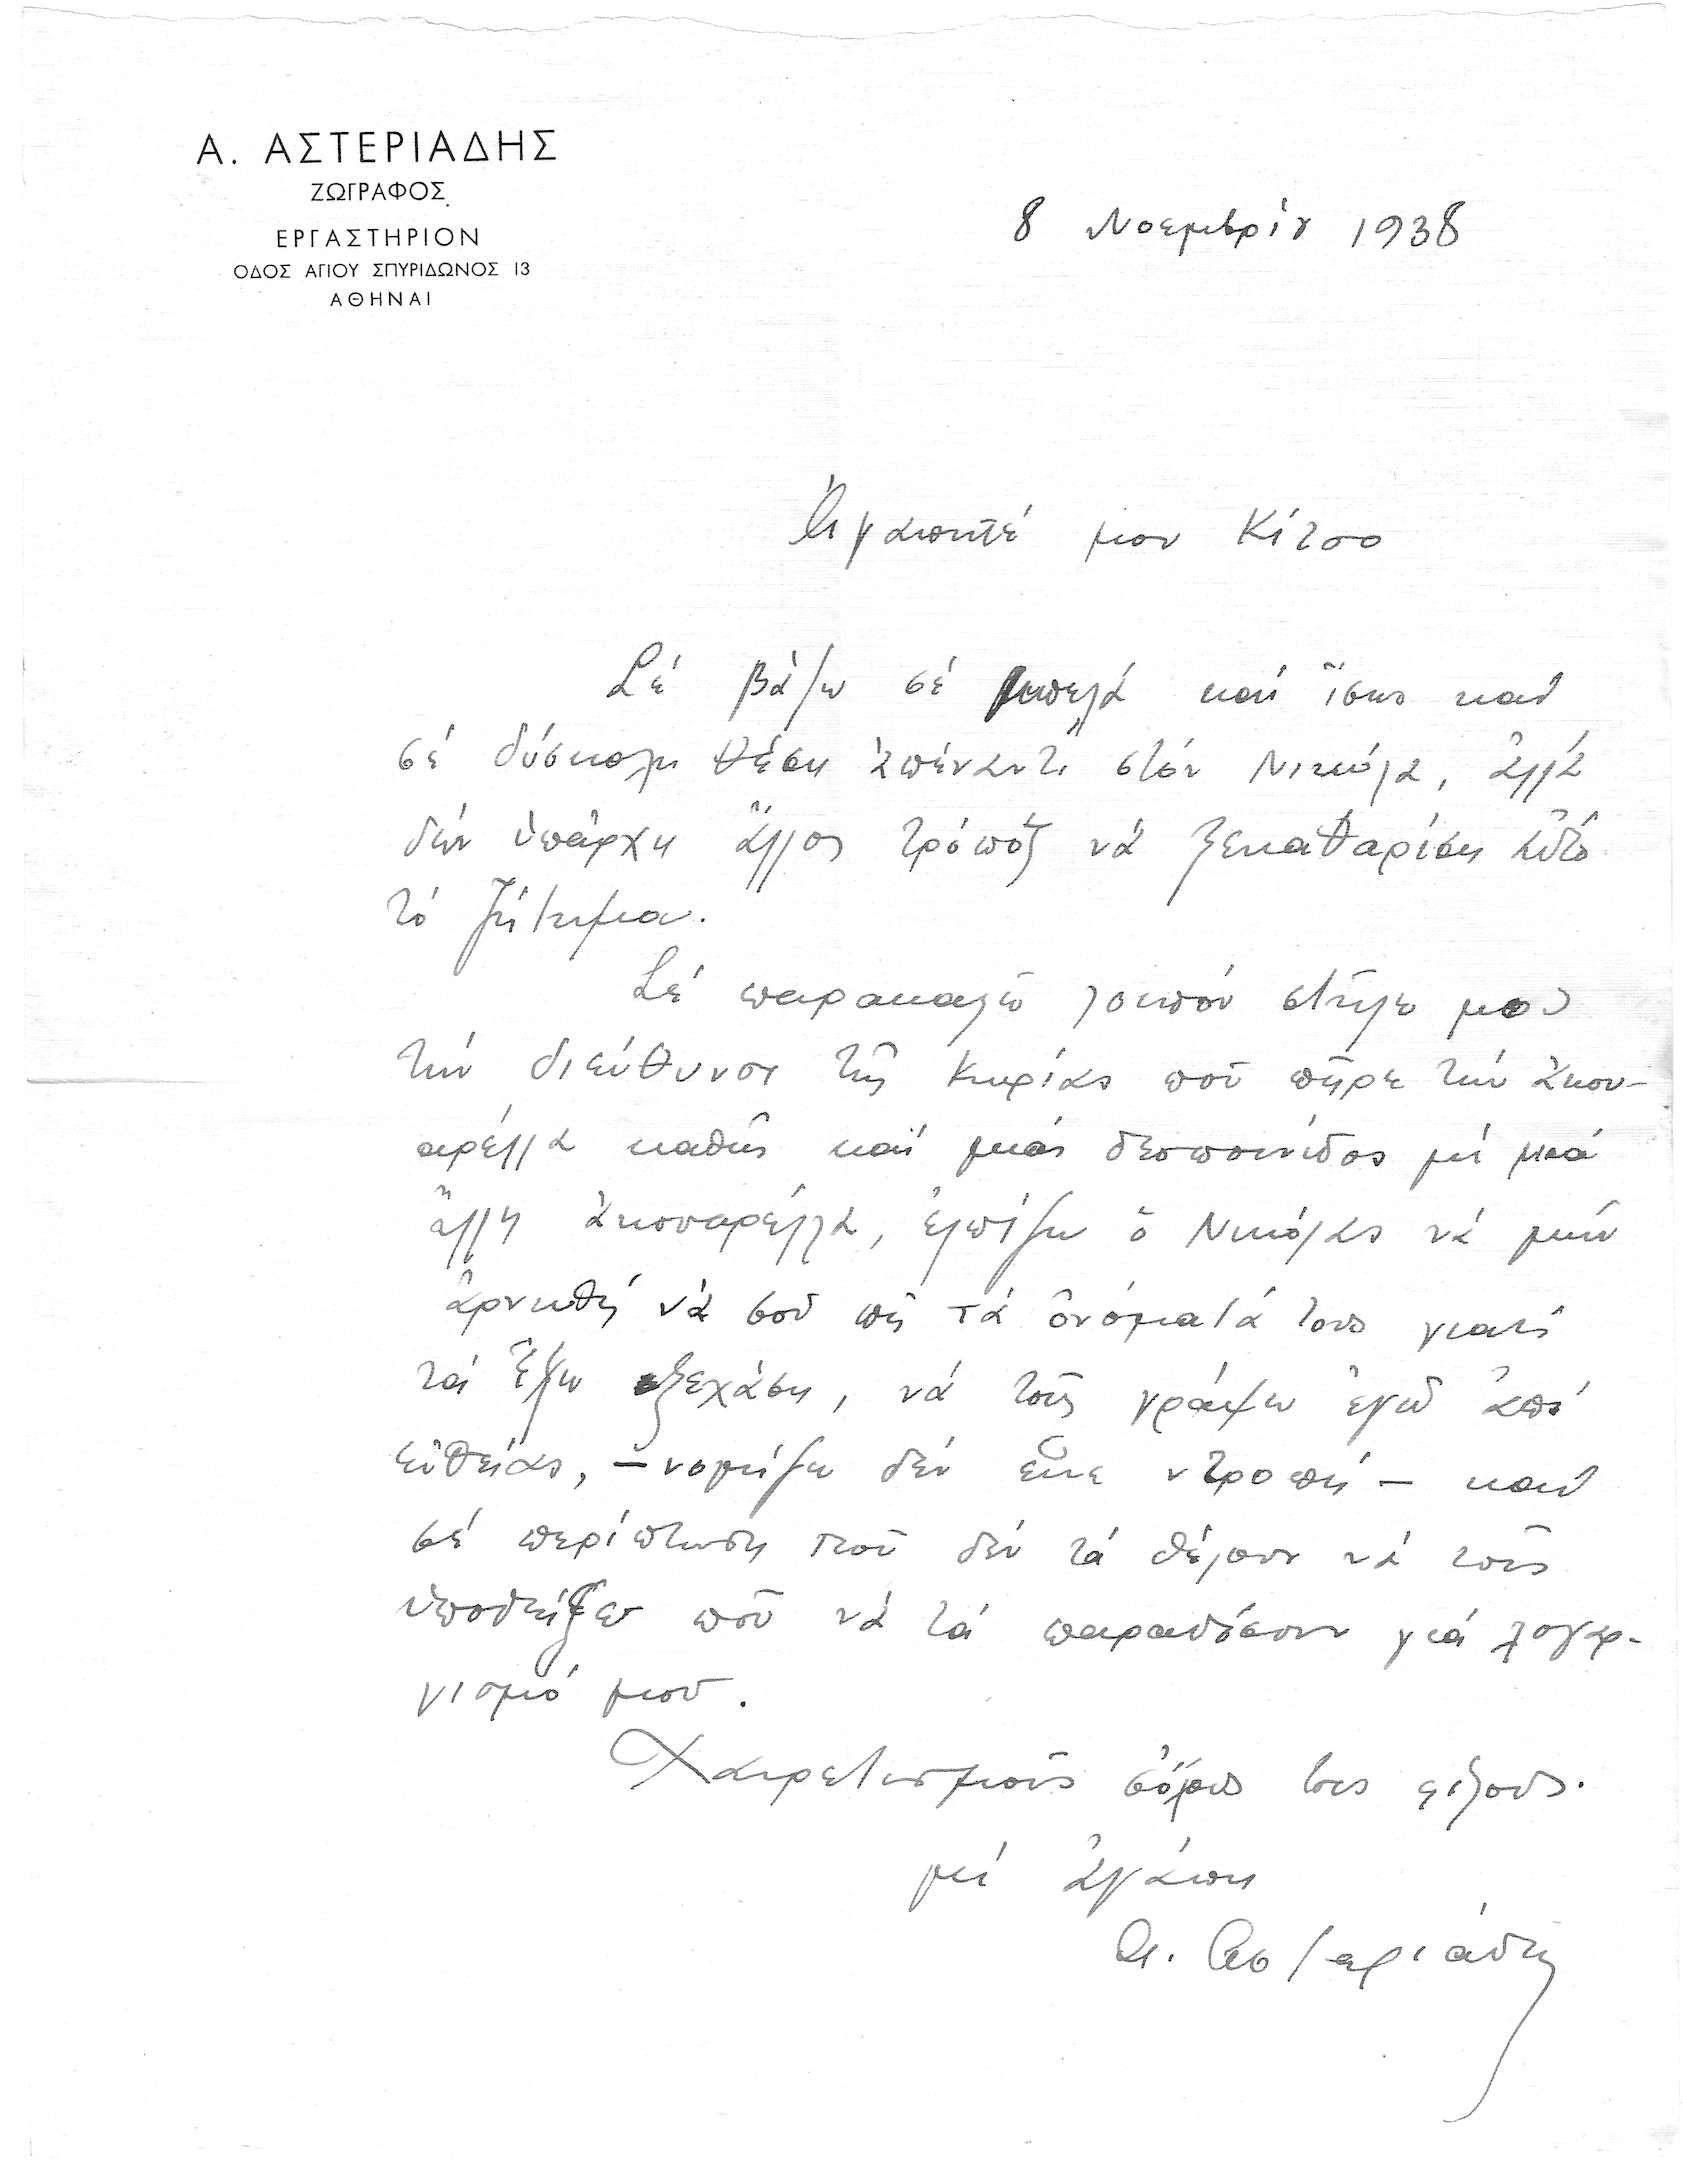 Α. ΑΣΤΕΡΙΑΔΗΣ
ΖΩΓΡΑΦΟΣ
ΕΡΓΑΣΤΗΡΙΟΝ
ΟΔΟΣ ΑΓΙΟΥ ΣΠΥΡΙΔΩΝΟΣ 13
ΑΘΗΝΑΙ
8 Νοεμβρίου 1938
Ἀγαπητέ μου Κίτσο
Σέ βάζω σέ μπελά καί ἴσως καί
σέ δύσκολη θέση ἀπέναντι στόν Νικόλα, ἀλλά
δέν ὑπάρχη ἄλλος τρόπος νά ξεκαθαρίση αὐτό
τό ζήτημα.
Σέ παρακαλῶ λοιπόν στεῖλε μου
τήν διεύθυνσι τῆς Κυρίας ποῦ πῆρε τήν ἀκου-
αρέλλα καθώς καί μιᾶς δεσποινίδος μέ μιά
ἄλλη ἀκουαρέλλα, ἐλπίζω ὁ Νικόλας νά μήν
ἀρνηθῆ νά σοῦ πῆ τά ὀνόματά τους γιατί
τά ἔχω ξεχάση, νά τούς γράψω ἐγώ ἀπό
εὐθείας, – νομίζω δέν εἶνε ντροπή – καί
σέ περίπτωση ποῦ δέν τά θέλουν νά τούς
ὑποδείξω ποῦ νά τά παραδόσουν γιά λογαρ-
γισμό μου.
Χαιρετισμούς σόλους τους φίλους.
μέ ἀγάπη
Α. Αστεριάδης